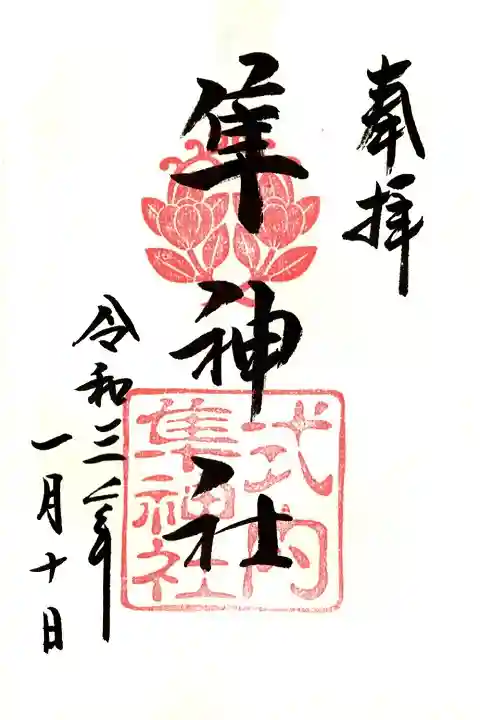 奉拝
隼神社
式内
隼神社
令和三年
一月十日